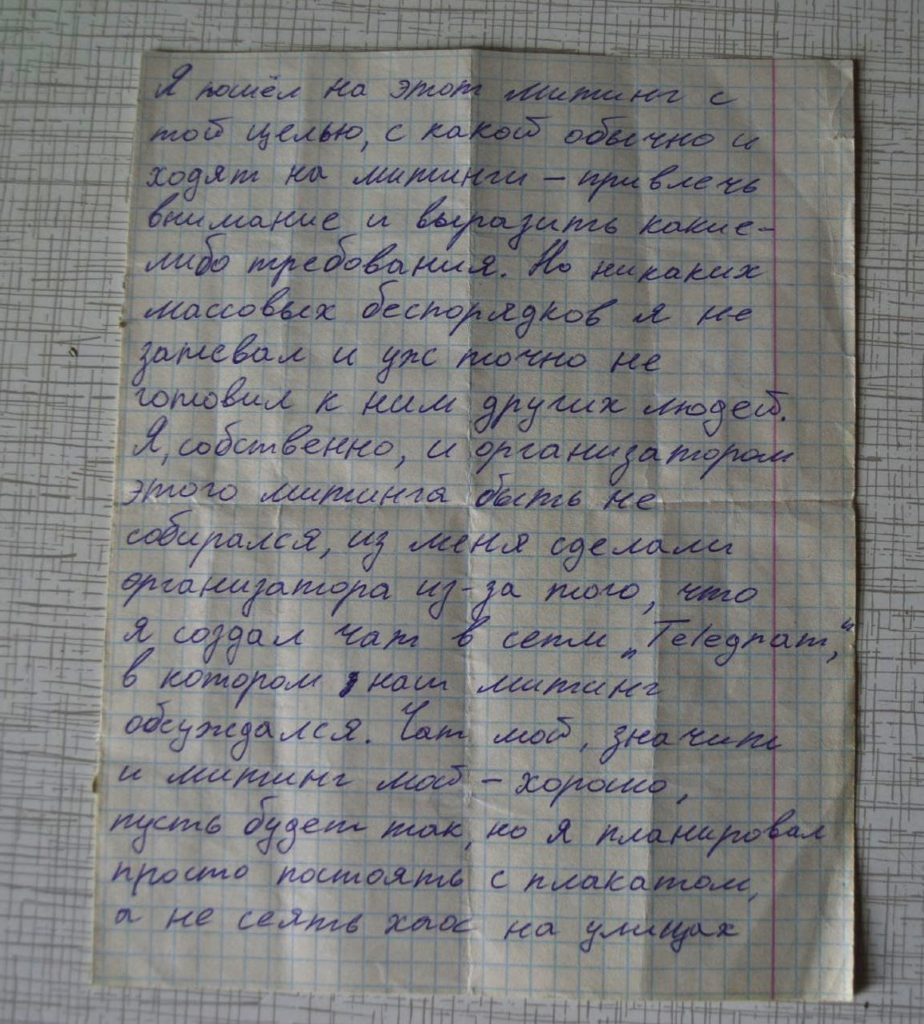 Я пошёл на этот митинг с
той целью, с какой обычно и
ходят на митинги – привлечь
внимание и выразить какие-
либо требования. Но никаких
массовых беспорядков я не
затевал и уж точно не
готовил к ним других людей.
Я, собственно, и организатором
этого митинга быть не
собирался, из меня сделали
организатора из-за того, что
я создал чат в сети „Telegram“,
в котором наш митинг
обсуждался. Чат мой, значит
и митинг мой – хорошо,
пусть будет так, но я планировал
просто постоять с плакатом,
а не сеять хаос на улицах